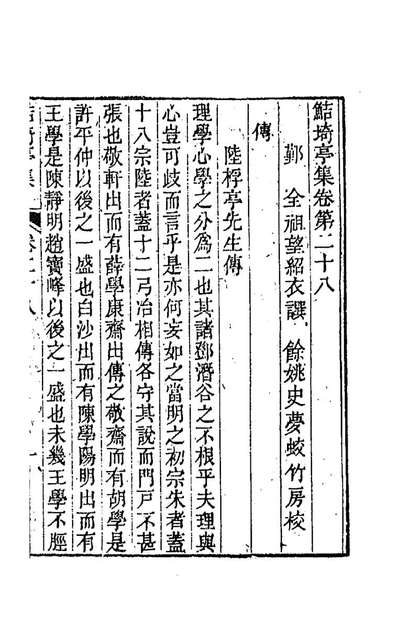 鮚埼亭集卷第二十八
鄞 全祖望紹衣譔 餘姚史夢蛟竹房校
傳
陸桴亭先生傳
理學心學之分為二也其諸鄧潛谷之不根乎夫理與
心豈可歧而言乎是亦何妄如之當明之初宗朱者蓋
十八宗陸者蓋十二弓冶相傳各守其說而門戶不甚
張也敬軒出而有薛學康齋出傳之敬齋而有胡學是
許平仲以後之一盛也白沙出而有陳學陽明出而有
王學是陳靜明趙寶峰以後之一盛也未幾王學不脛